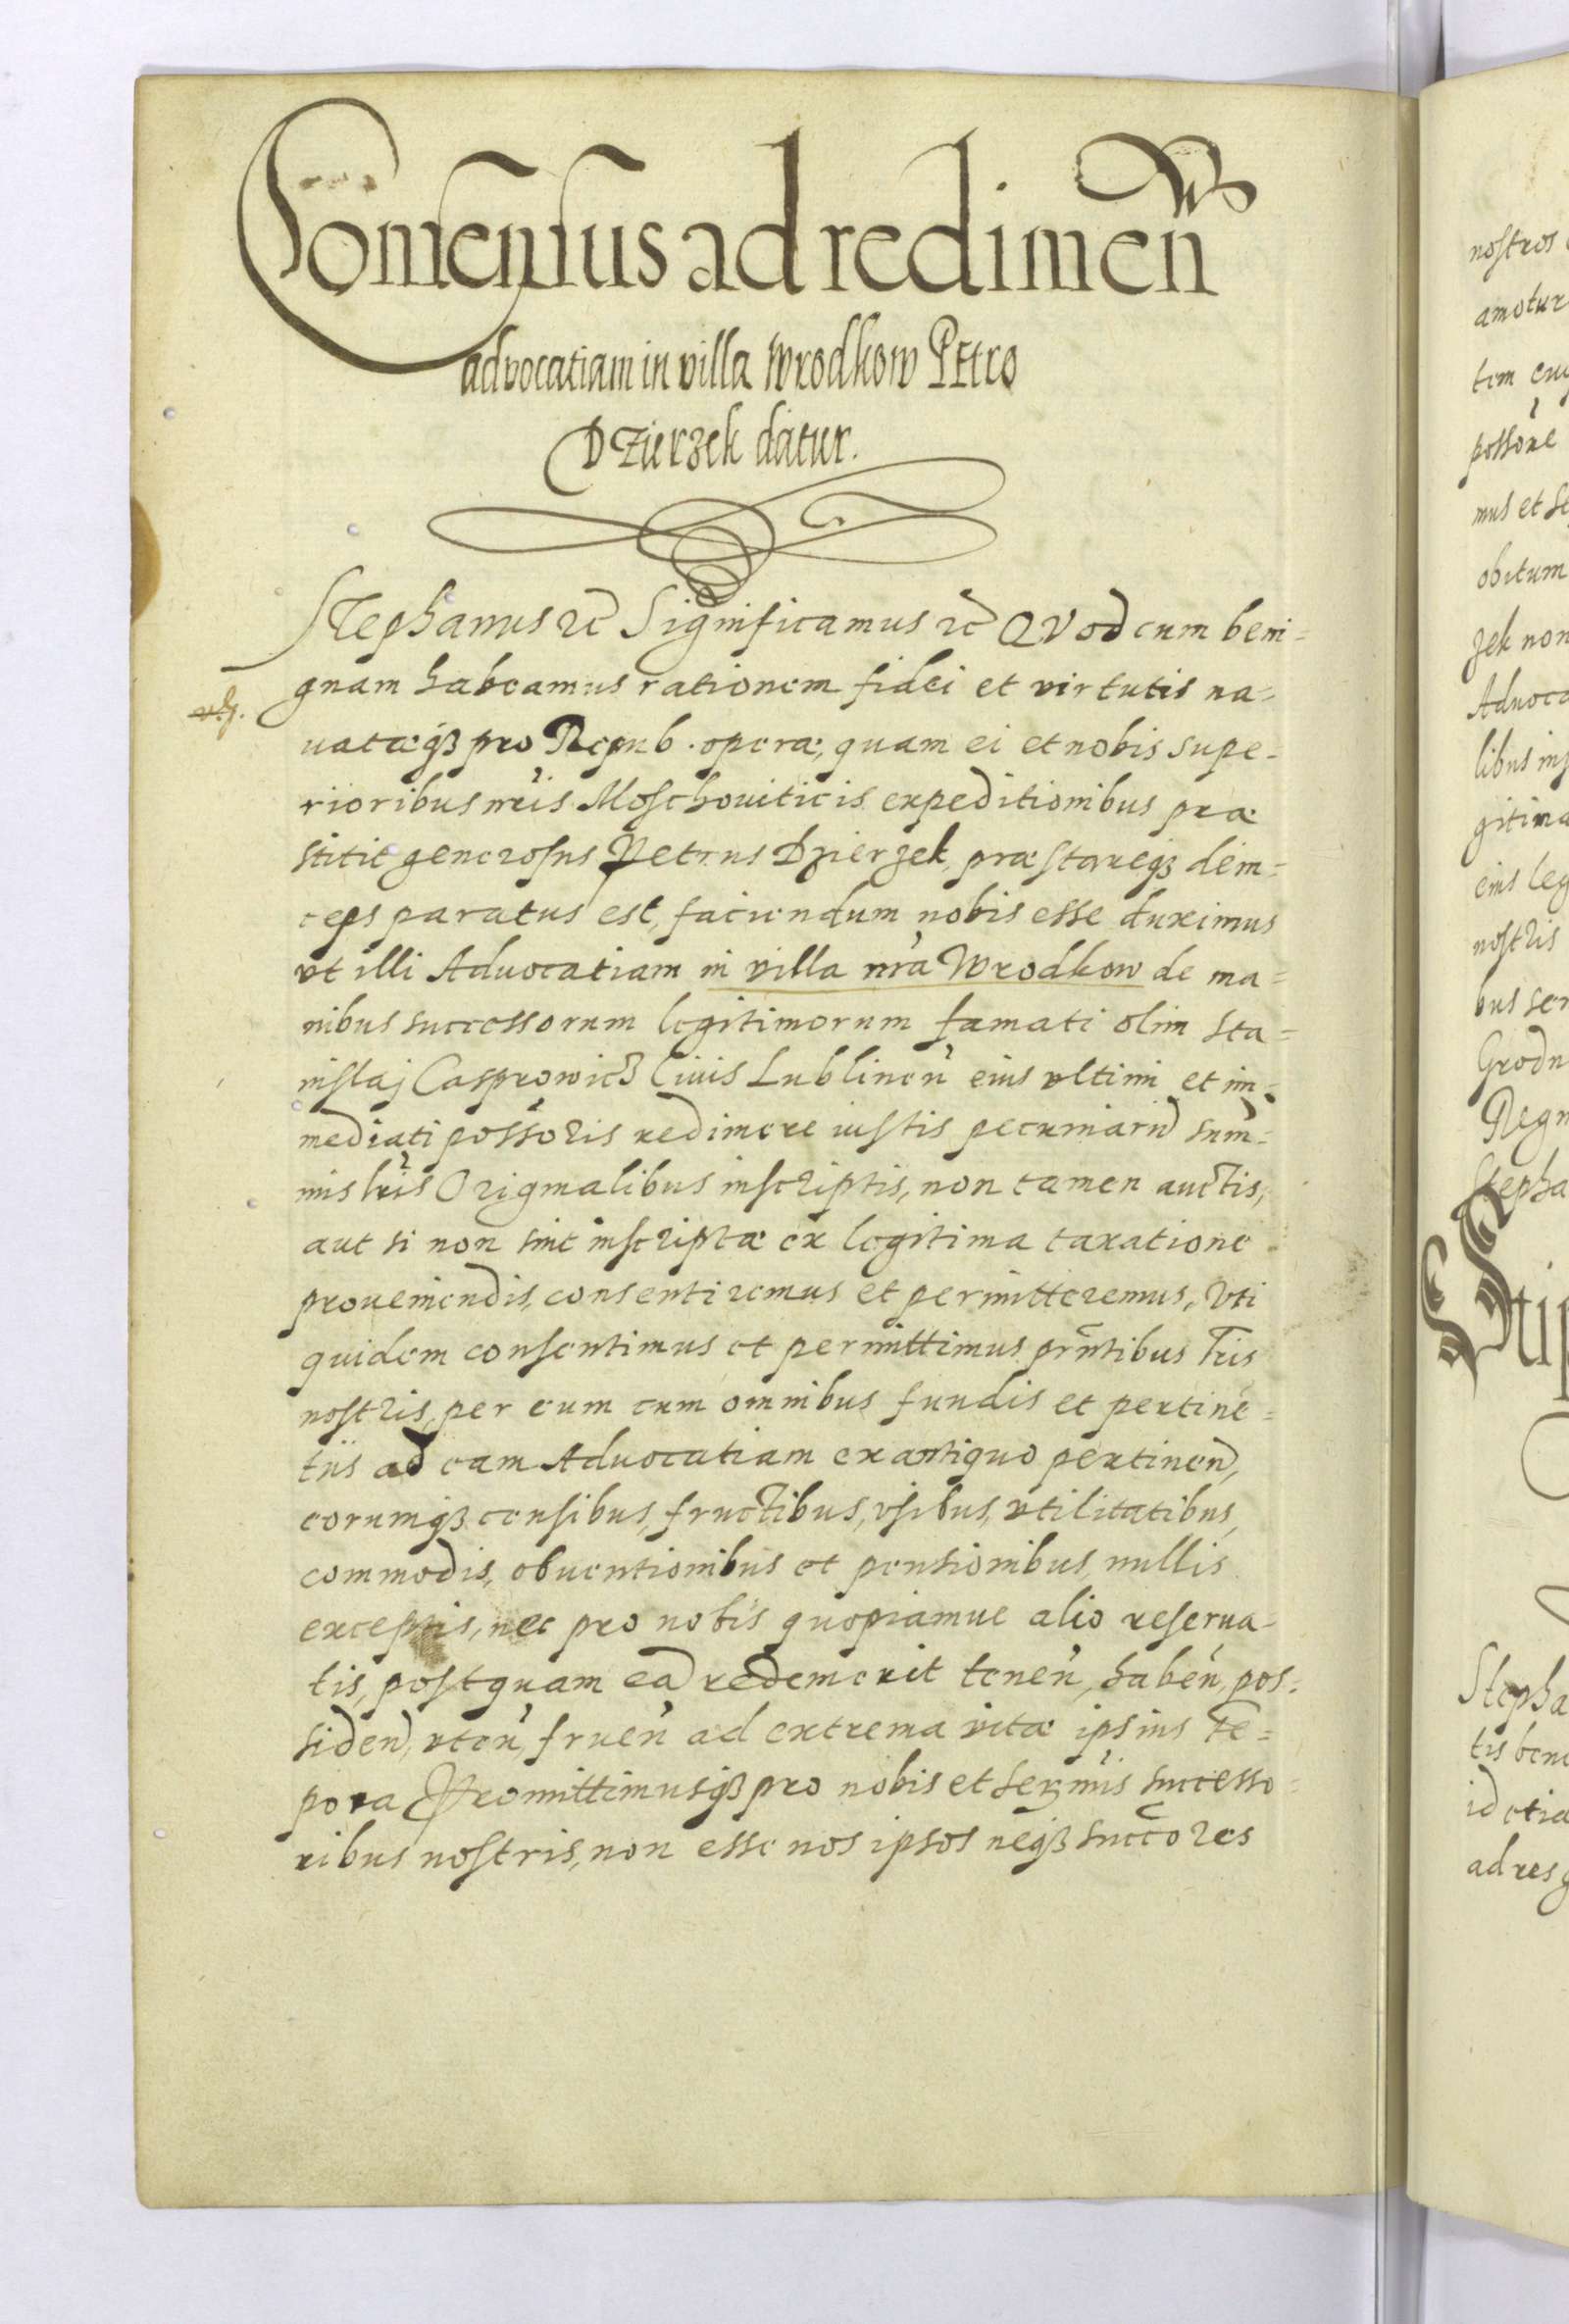 Consensus ad redimen̄
advocatiam in villa Wrodkow Petro
Dzierzek datur.
Stephanus ꝛc̄ Significamus ꝛc̄ QVod cum beni=
gnam habeamus rationem fidei et virtutis na=
uatæqꝫ pro Repub. operæ, quam ei et nobis supe=
rioribus nr̃is Moschouiticis expeditionibus præ
stitit generosus Petrus Dzierzek, præstareqꝫ dein=
ceps paratus est, faciendum nobis esse duximus
vt illi Aduocatiam in villa nr̃a Wrodkow de ma=
nibus successorum legitimorum famati olim Sta=
nislaj Casprowicz Ciuis Lublinen̄ eius vltimi et im=
mediati possor̃is redimere iustis pecuniarū sum̄=
mis lr̃is Originalibus inscriptis, non tamen auctis,
aut si non sint inscriptæ ex legitima taxatione
proueniendis, consentiremus et permitteremus, Vti
quidem consentimus et permittimus pr̄ntibus lr̃is
nostris, per eum cum omnibus fundis et pertinē=
tiis ad eam Aduocatiam ex antiquo pertinen̄,
eorumqꝫ censibus, fructibus, vsibus, vtilitatibus,
commodis, obuentionibus et pensionibus, nullis
exceptis, nec pro nobis quopiamue alio reserua=
tis, postquam eā redemerit tenen̄, haben̄, pos=
siden̄, vten̄, fruen̄ ad extrema vitæ ipsius tē=
pora Promittimusqꝫ pro nobis et Ser̃mis Successo=
ribus nostris, non esse nos ipsos neqꝫ succ̄ores
nostros
amotur
tem
possor̃e
mus et Se
obitum
zek non
Aduoca
libus
gitima
eius leg
nostris
bus ser
Grodn
Regn
Stepha
Stip
Stepha
tis bene
id etia
ad res